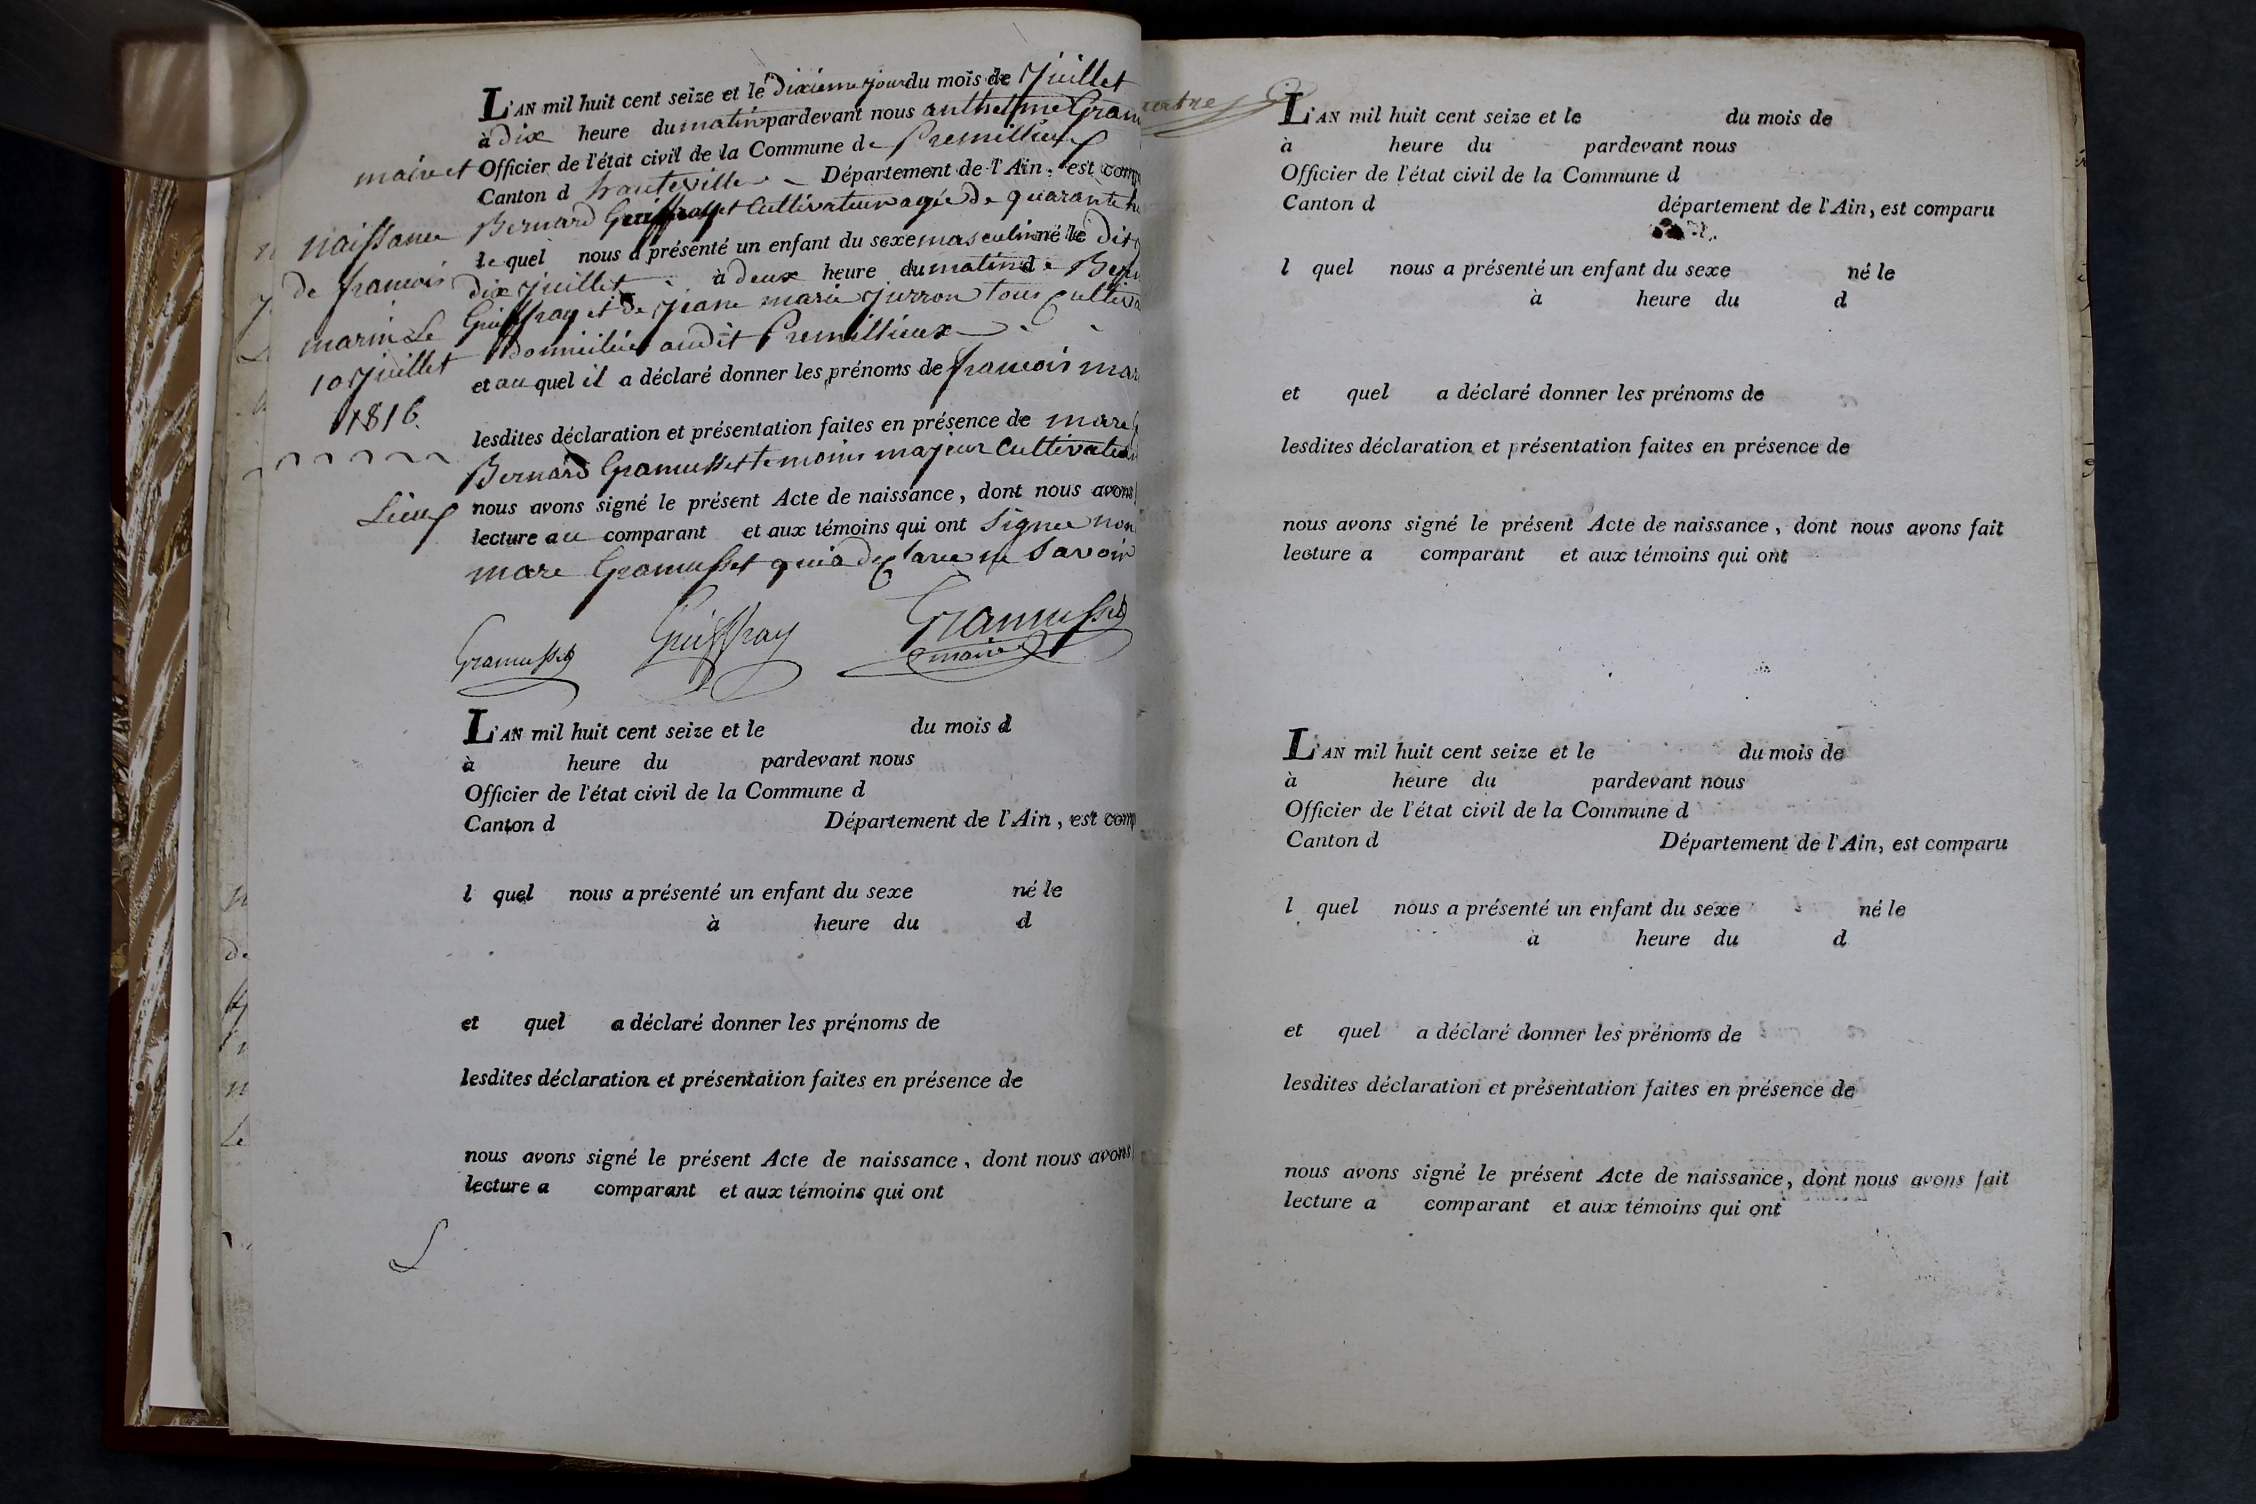 L'AN mil huit cent seize et le Dixieme jour du mois de Juillet
à Dix heure du matin pardevant nous anthelme Gram
maire et Officier de l'état civil de la Commune de Premillieux
Canton d hauteville Département de l'Ain, est comp
Bernard Guiffray et Cultivateur agée de quarante
le quel nous a présenté un enfant du sexe masculin né le dit
dix Juillet à deux heure du matin de Bern
Guiffray et de Jeane marie Jurron tous cultiva
domiciliés audit Premillieux
et au quel il a déclaré donner les prénoms de francois mar
lesdites déclaration et présentation faites en présence de marc
Bernard Gramusset temoins majeur Cultivateur
nous avons signé le présent Acte de naissance, dont nous avons
lecture au comparant et aux témoins qui ont Signee non
marc Gramusset qui a declaree ne Savoir
Gramusset Guiffray Gramusset
maire
naissance
de francois
marin Le
10 Juillet
1816.
Lieux
L'AN mil huit cent seize et le du mois d
à heure du pardevant nous
Officier de l'état civil de la Commune d
Canton d Département de l'Ain, est comp
l quel nous a présenté un enfant du sexe né le
à heure du d
et quel a déclaré donner les prénoms de
lesdites déclaration et présentation faites en présence de
nous avons signé le présent Acte de naissance, dont nous avons
lecture a comparant et aux témoins qui ont
L'AN mil huit cent seize et le du mois de
à heure du pardevant nous
Officier de l'état civil de la Commune d
Canton d département de l'Ain, est comparu
l quel nous a présenté un enfant du sexe né le
à heure du d
et quel a déclaré donner les prénoms de
lesdites déclaration et présentation faites en présence de
nous avons signé le présent Acte de naissance, dont nous avons fait
lecture a comparant et aux témoins qui ont
L'AN mil huit cent seize et le du mois de
à heure du pardevant nous
Officier de l'état civil de la Commune d
Canton d Département de l'Ain, est comparu
l quel nous a présenté un enfant du sexe né le
à heure du d
et quel a déclaré donner les prénoms de
lesdites déclaration et présentation faites en présence de
nous avons signé le présent Acte de naissance, dont nous avons fait
lecture a comparant et aux témoins qui ont